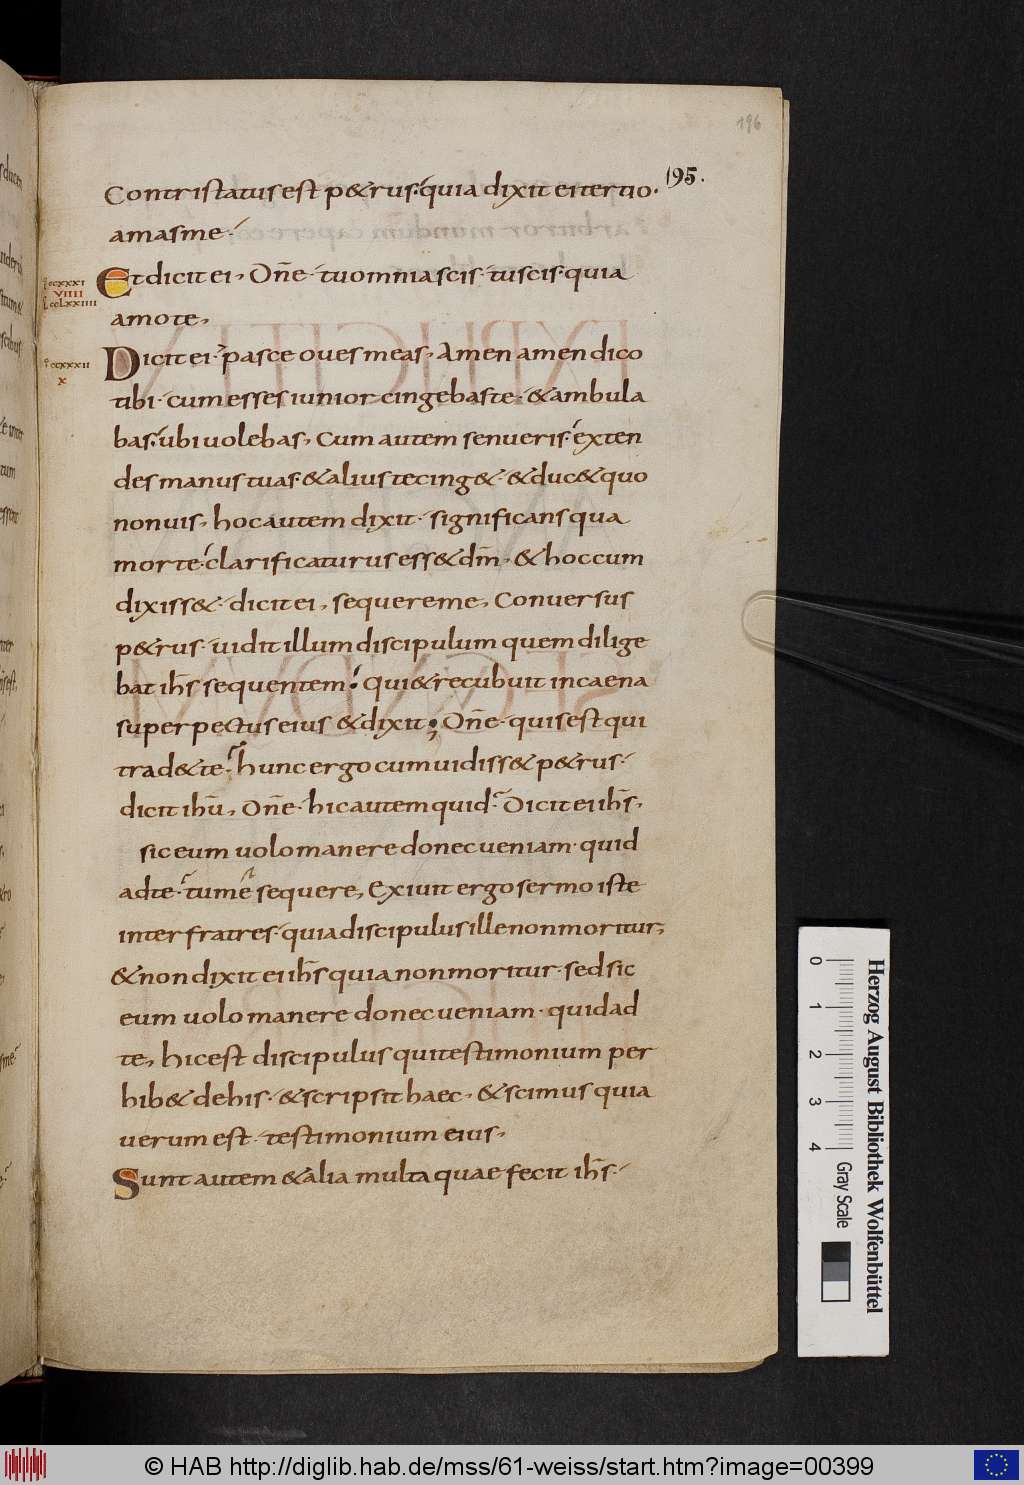 196
195.
Contristatus est p&rus. quia dixit ei tertio.
amas me.
Et dicit ei, Dn̄e. tu omnia scis. tu scis. quia
amo te,
Dicit ei. pasce oues meas, Amen amen dico
tibi. cum esses iunior cingebas te. & ambula
bas. ubi uolebas, Cum autem senueris. exten
des manus tuas. & alius te cing&. & duc& quo
non uis, hoc autem dixit. significans qua
morte. clarificaturus ess& dm̄. & hoc cum
dixiss&. dicit ei, sequere me, Conuersus
p&rus. uidit illum discipulum quem dilige
bat ih̄s sequentem. Qui & recubuit in caena
super pectus eius & dixit; Dn̄e. quis est qui
trad& te. hunc ergo cum uidiss& p&rus.
dicit ih̄u, Dn̄e. hic autem quid. Dicit ei ih̄s,
sic eum uolo manere donec ueniam. quid
ad te. tu me sequere, Exiuit ergo sermo iste
inter fratres. quia discipulus ille non moritur,
& non dixit ei ih̄s quia non moritur. sed sic
eum uolo manere donec ueniam. quid ad
te, hic est discipulus qui testimonium per
hib& de his. & scripsit haec, & scimus quia
uerum est. testimonium eius,
Sunt autem & alia multa quae fecit ih̄s.
ccxxxi
viiii
cclxxiiii
ccxxxii
x
0 1 2 3 4
Gray Scale
Herzog August Bibliothek Wolfenbüttel
© HAB http://diglib.hab.de/mss/61-weiss/start.htm?image=00399